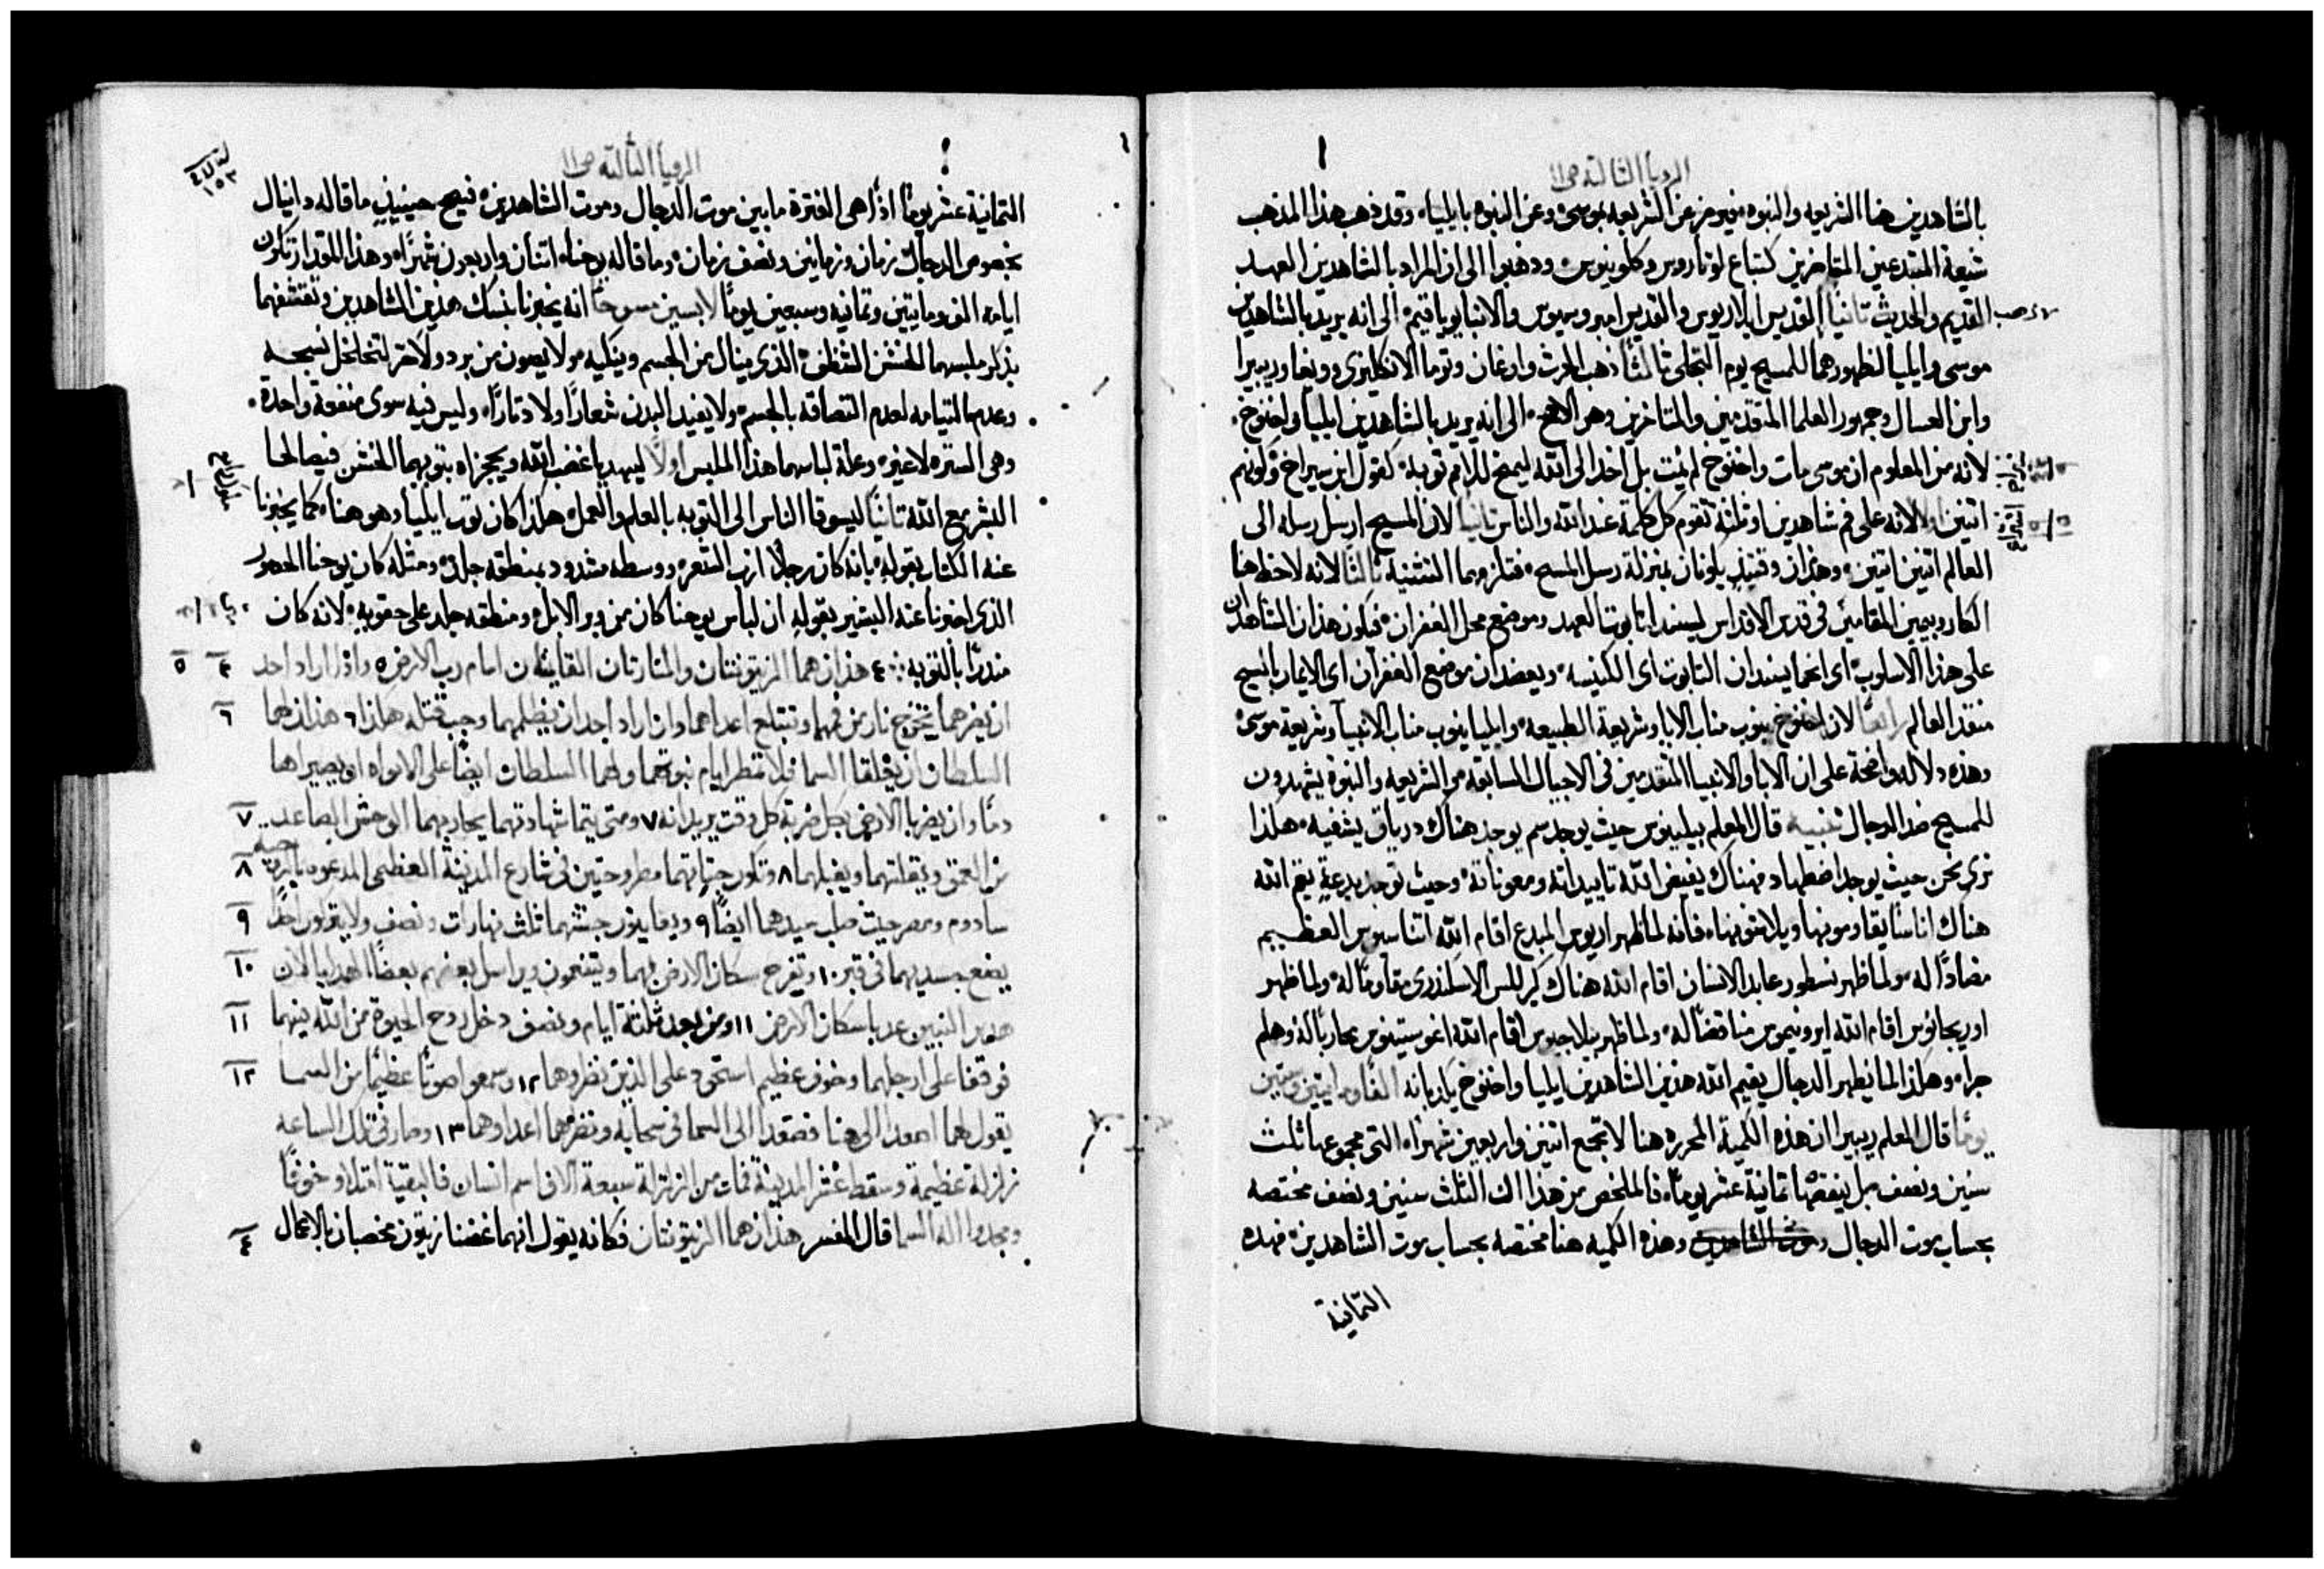 الرويا الثالثة ص١١
بالشاهدين هنا الشريعه والنبوه فيرمز عن الشريعه بموسى وعن النبوه بايلياء وقد ذهب هذا المذهب
شيعة المبتدعين المتاخرين كتباع لوتاروس وكلوينوس ودهبوا الى ان المراد بالشاهدين العهد
القديم والحديث ثانيًا القديس ايلاريوس والقديس امبروسيوس والانبا يوياقيم الى انه يريد بالشاهدين
موسى وايليا لظهورهما للمسيح يوم التجلي ثالثًا ذهب الحرث وادغان وتوما الانكليزي وريبيرا
وابن العسال وجمهور العلما المتقدمين والمتاخرين وهو الاصح الى انه يريد بالشاهدين ايليا واخنوخ
لانه من المعلوم ان موسى مات واخنوخ لم يمت بل اخد الى الله ليمنح للامم توبة كقول ابن سيراخ وكونهم
اثنين اولا لانه على فم شاهدين او ثلثه تقوم كل كلمة عند الله والناس ثانيا لان المسيح ارسل رسله الى
العالم اثنين اثنين وهذان وقتيذٍ يكونان بمنزلة رسل المسيح فتلزمهما التثنية ثالثًا لانه لاحظ هنا
الكاروبيمين المقامين في قدس الاقداس ليسندا تابوت العهد وموضع محل الغفران فيكون هذان الشاهدان
على هذا الاسلوب اى انهما يسندان التابوت اى الكنيسه ويعضدان موضع الغفران اى الايمان بالمسيح
منقذ العالم رابعًا لان اخنوخ ينوب مناب الابا وشريعة الطبيعه وايليا ينوب مناب الانبيا وشريعة موسى
وهذه دلاله واضحة على ان الابا والانبيا المتقدمين في الاجيال السابقه والشريعه والنبوة يشهدون
للمسيح ضد الدجال تنبيه قال المعلم بيلينوس حيث يوجد سم يوجد هناك درياق يشفيه هكذا
نرى نحن حيث يوجد اضطهاد فهناك يفيض الله تاييداته ومعوناتة وحيث توجد بدعة يقيم الله
هناك اناسًا يقاومونها ويلاشونها فانه لما ظهر اريوس المبدع اقام الله اتناسيوس العظيم
مضادًا له ولما ظهر نسطور عابد الانسان اقام الله هناك كيرللس الاسكندري مقاومًا له ولما ظهر
اوريجانوس اقام الله ايرونيموس مناقضًا له ولما ظهر بيلاجيوس اقام الله اغوستينوس محاربًا له وهلم
جراء وهكذا لما يظهر الدجال يقيم الله هذين الشاهدين ايليا واخنوخ يكرزان الفًا ومايتين وستين
يومًا قال المعلم ريبيرا ان هذه الكمية المحرره هنا لا تجمع اثنين واربعين شهرًا التى مجموعها ثلث
سنين ونصف بل ينقصها ثمانية عشر يومًا فالملخص من هذا ان الثلث سنين ونصف مختصه
بحساب موت الدجال وهذه الكميه هنا مختصه بحساب موت الشاهدين فهذه
الثمانية
الرويا الثالثة ص١١
الثمانية عشر يومًا اذًا هى الفترة ما بين موت الدجال وموت الشاهدين فيصح حينيذٍ ما قاله دانيال
بخصوص الدجال زمان وزمانين ونصف زمان وما قاله يوحنا اثنان واربعون شهرًا وهذا المقدار تكون
ايامه الف ومايتين وثمانيه وسبعين يومًا لابسين مسوحًا انه يخبرنا بنسك هذين الشاهدين وتقشفهما
بذكر ملبسهما الخشن الشظف الذى ينال من الجسم وينكيه ولا يصون من برد ولا حر لتخلخل نسجه
وعدم التيامه لعدم التصاقه بالجسم ولا يفيد البدن شعارًا ولا دثارًا وليس فيه سوى منفعة واحدة
وهى الستره لا غير وعلة لباسهما هذا الملبس اولًا ليهديا غضب الله ويحجزاه بتوبهما الخشن فيصالحا
البشر مع الله ثانيًا ليسوقا الناس الى التوبه بالعلم والعمل هكذا كان توب ايلياء وهو هنا كما يخبرنا
عنه الكتاب بقوله بانه كان رجلًا ازب الشعر ووسطه مشدود بمنطقة جلد ومثله كان يوحنا الحصور
الذى اخبرنا عنه البشير بقوله ان لباس يوحنا كان من وبر الابل ومنطقه جلد على حقويه لانه كان
منذرًا بالتوبه ٤ هذان هما الزيتونتان والمنارتان القايمتان امام رب الارض ٥ واذا اراد احد
ان يضرهما تخرج نار من فمهما وتبتلع اعداهما وان اراد احد ان يظلمهما وجب قتله هكذا ٦ هذان لهما
السلطان ان يغلقا السما فلا تمطر ايام نبوتهما ولهما السلطان ايضًا على الامواه ان يصيراها
دمًا وان يضربا الارض بكل ضربة كل وقت يريدانه ٧ ومتى يتما شهادتهما يحاربهما الوحش الصاعد
من العمق ويقتلهما ويغلبهما ٨ وتكون جثتهما مطروحتين في شارع المدينة العظمى المدعوه
سادوم ومصر حيث صلب سيدهما ايضًا ٩ ويعاينون جثتهما ثلث نهارات ونصف ولا يتركون احدًا
يضع جسديهما في قبر ١٠ وتفرح سكان الارض بهما ويتنعمون ويراسل بعضهم بعضًا الهدايا لان
هذين النبيين عذبا سكان الارض ١١ ومن بعد ثلثة ايام ونصف دخل روح الحيوة من الله فيهما
فوقفا على ارجلهما وخوف عظيم استحوذ على الذين نظروهما ١٢ وسمعوا صوتًا عظيمًا من السما
يقول لهما اصعدا الى هنا فصعدا الى السما في سحابه ونظرهما اعداوهما ١٣ وصار في تلك الساعه
زلزلة عظيمة وسقط عشر المدينة فمات من الزلزلة سبعة الاف اسم انسان فالبقية امتلاو خوفًا
ومجدوا اله السما قال المفسر هذان هما الزيتونتان فكانه يقول انهما غصنا زيتون مخصبان بالاعمال